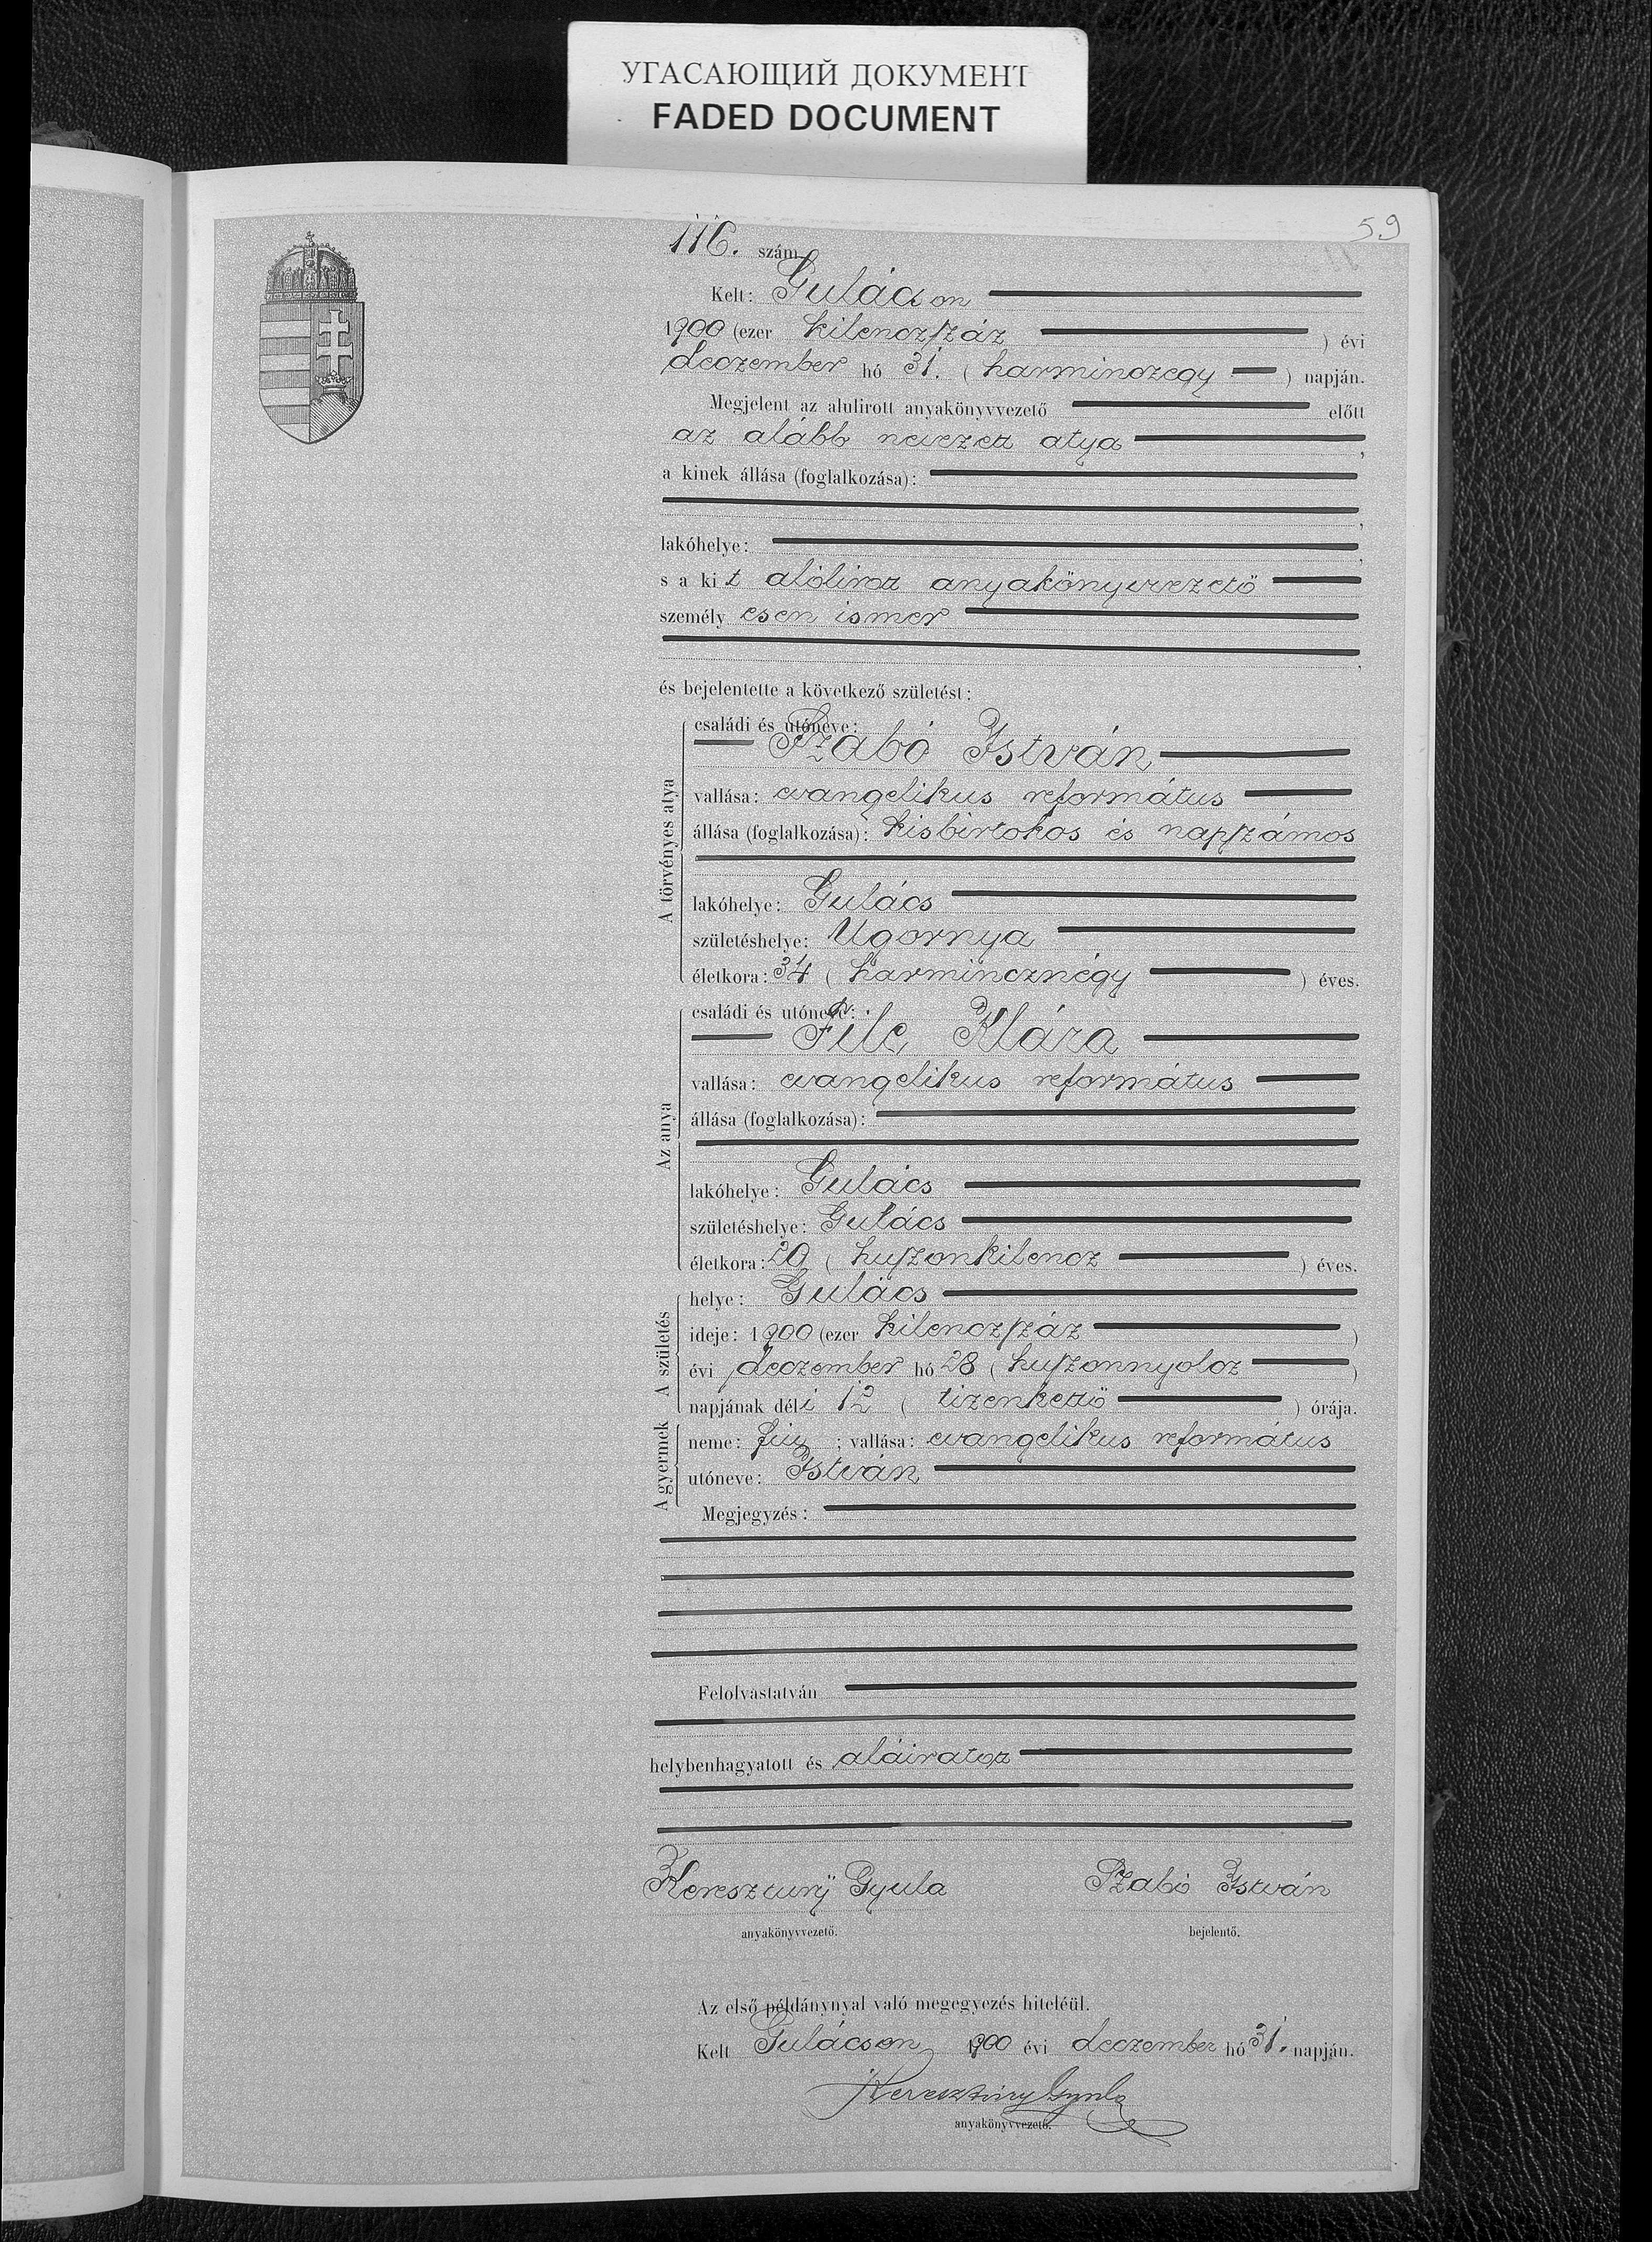 УГАСАЮЩИЙ ДОКУМЕНТ
FADED DOCUMENT
59
116. szám
Kelt: Gulácson
1900 (ezer kilenczszáz ) évi
deczember hó 31. ( harminczegy ) napján.
Megjelent az alulirott anyakönyvvezető előtt
az alább nevezett atya ,
a kinek állása (foglalkozása):
,
lakóhelye: ,
s a kit alólirott anyakönyvvezető
személyesen ismer
,
és bejelentette a következő születést:
A törvényes atya
családi és utóneve:
Szabó István
vallása: evangelikus református
állása (foglalkozása): kisbirtokos és napszámos
lakóhelye: Gulács
születéshelye: Ugornya
életkora: 34 ( harmincznégy ) éves.
Az anya
családi és utóneve:
Füle Klára
vallása: evangelikus református
állása (foglalkozása):
lakóhelye: Gulács
születéshelye: Gulács
életkora: 29 ( huszonkilencz ) éves.
A születés
helye: Gulács
ideje: 1900 (ezer kilenczszáz )
évi deczember hó 28 ( huszonnyolcz )
napjának déli 12 ( tizenkettő ) órája.
A gyermek
neme: fiu ; vallása: evangelikus református
utóneve: István
Megjegyzés:
Felolvastatván
helybenhagyatott és aláiratott
Keresztury Gyula Szabó István
anyakönyvvezető. bejelentő.
Az első példánynyal való megegyezés hiteléül.
Kelt Gulácson, 1900 évi deczember hó 31. napján.
Keresztury Gyula
anyakönyvvezető.